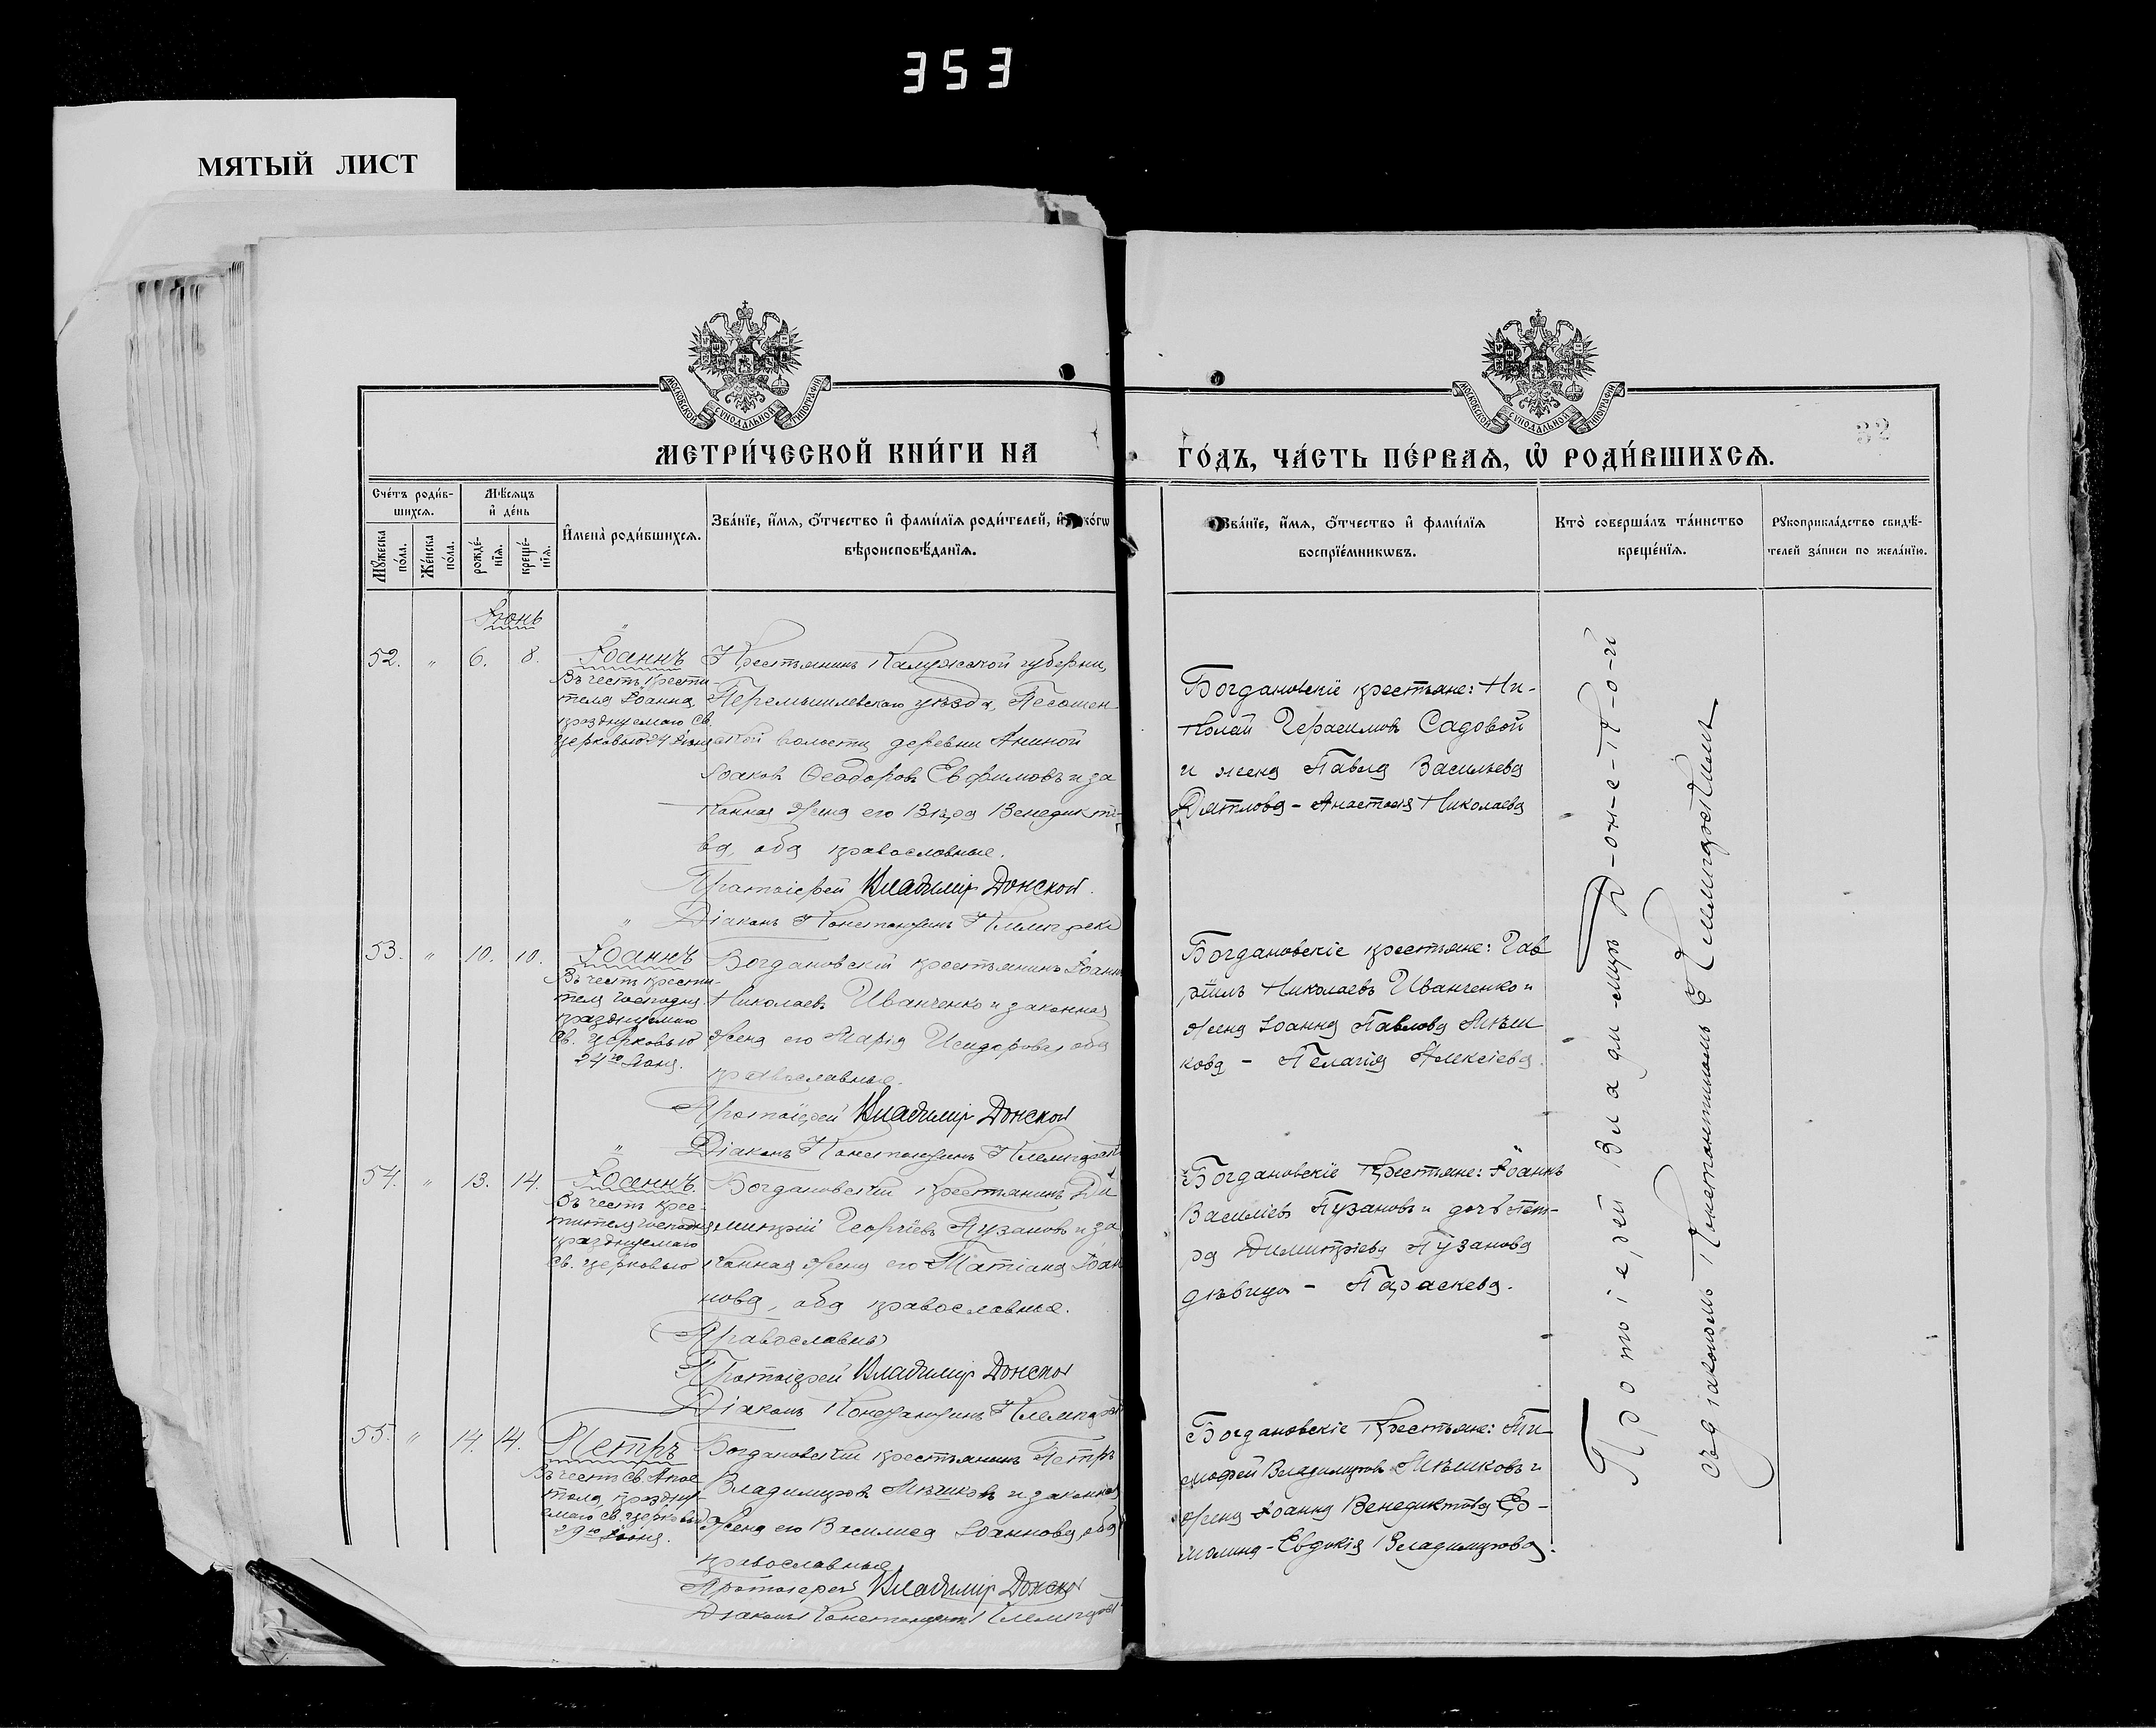 353
МЯТЫЙ ЛИСТ
МОСКОВСКОЙ СѴНОДАЛЬНОЙ ТИПОГРАФІИ
МОСКОВСКОЙ СѴНОДАЛЬНОЙ ТИПОГРАФІИ
32
МЕТРИ́ЧЕСКОЙ КНИ́ГИ НА
ГО́ДЪ, ЧА́СТЬ ПЕ́РВАѦ, Ѡ҆ РОДИ́ВШИХСѦ.
Сче́тъ роди́в-
шихсѧ.
Мꙋжеска
по́ла.
Же́нска
по́ла.
Мѣ́сѧцъ
и҆ де́нь
рожде́-
нїѧ.
креще́-
нїѧ.
И҆мена̀ роди́вшихсѧ.
Зва́нїе, и҆́мѧ, ѻ҆́тчество и҆ фами́лїѧ роди́телей, и҆ ко́гѡ
вѣроисповѣ́данїѧ.
Зва́нїе, и҆́мѧ, ѻ҆́тчество и҆ фами́лїѧ
воспрїе́мникѡвъ.
Кто̀ соверша́лъ та́инство
креще́нїѧ.
Рꙋкоприкла́дство свидѣ́-
телей за́писи по жела́нїю.
Іюнь
52. " 6. 8. Іоаннъ
Въ честь Крести-
теля Іоанна
празднуемаго Св.
Церковью 24 Іюня
Крестьянинъ Калужской губерни,
Перемышлевскаго уѣзда, Песочен
ской волости деревни Аниной
Іоаковъ Ѳеодоровъ Евфимовъ и за
конная жена его Вѣра Венедикто-
ва, оба православные.
Протоіерей Владиміръ Донской.
Діаконъ Константинъ
Богдановскіе крестьяне: Ни-
колай Герасимовъ Садовой
и жена Павла Васильева
Дятлова - Анастасія Николаева
53. " 10. 10. Іоаннъ
Въ честь Крести-
теля Господня
празднуемаго
Св. Церковью
24го Іюня.
Богдановскій крестьянинъ Іоаннъ
Николаевъ Иванченко и законная
жена его Марія Исидорова, оба
православные.
Протоіерей Владиміръ Донской
Діаконъ Константинъ
Богдановскіе крестьяне: Гав
ріилъ Николаевъ Иванченко и
жена Іоанна Павлова Мѣши
кова - Пелагія Алексіева.
54. " 13. 14. Іоаннъ.
Въ честь Крес-
тителя Господня
празднуемаго
Св. Церковью
Богдановскій крестьянинъ Ди
митрій Георгіевъ Пузановъ и за
конная жена его Татіана Іоан
нова, оба православные.
(Православны)
Протоіерей Владиміръ Донской
Діаконъ Константинъ
Богдановскіе Крестьяне: Іоаннъ
Василіевъ Пузановъ и дочь Пет-
ра Димитріева Пузанова
дѣвица - Параскева.
55. " 14. 14. Петръ
Въ честь Св. Апос
тола, праздну-
емаго Св. Церковью
29го Іюня.
Богдановскій крестьянинъ Петръ
Владиміровъ Мѣшиковъ и законная
жена его Василиса Іоаннова, оба
православные
Протоіерей Владиміръ Донской
Діаконъ Константинъ
Богдановскіе Крестьяне: Ти-
мофей Владиміровъ Мѣшиковъ и
жена Іоанна Венедиктова Ер-
молина - Евдокія Владимірова.
Протоіерей Владиміръ Донской
съ діакономъ Константиномъ